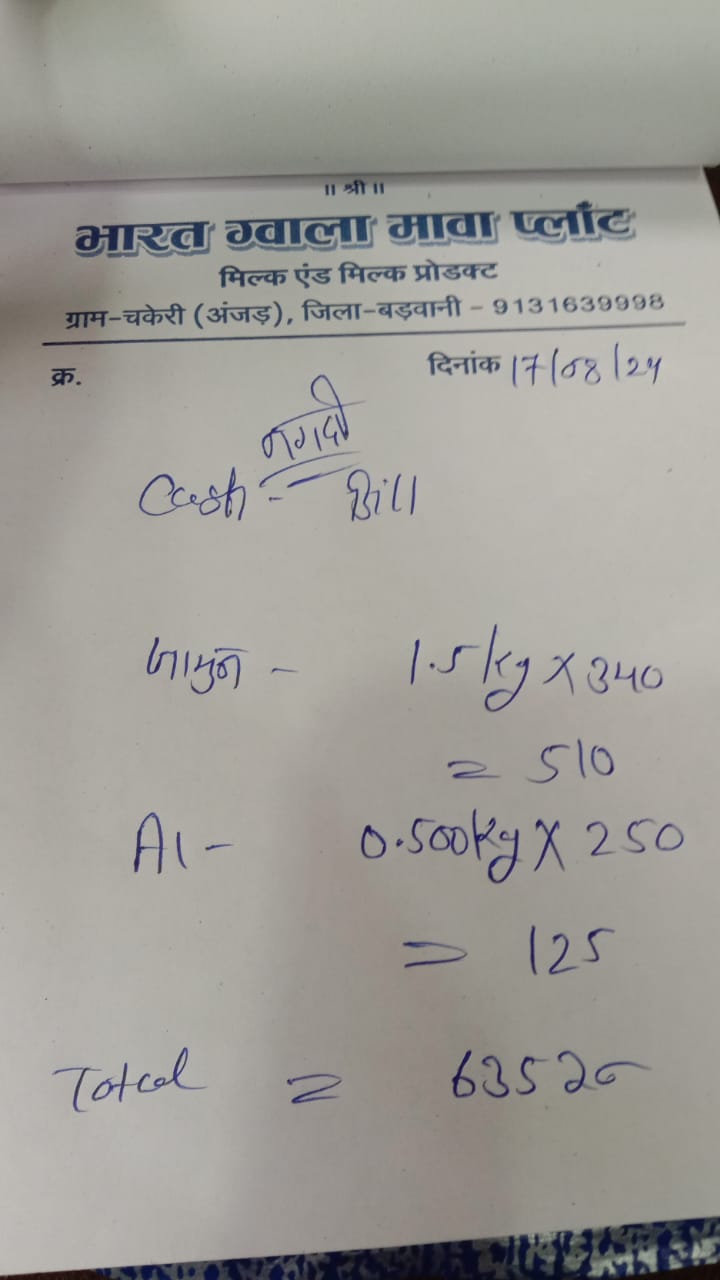 ॥ श्री ॥
भारत ग्वाला मावा प्लाँट
मिल्क एंड मिल्क प्रोडक्ट
ग्राम-चकेरी (अंजड़), जिला-बड़वानी - 9131639998
क्र. दिनांक 17/08/24
नगदी
Cash - Bill
जामुन - 1.5 kg X 340
= 510
A1 - 0.500kg X 250
= 125
Total = 635 रु